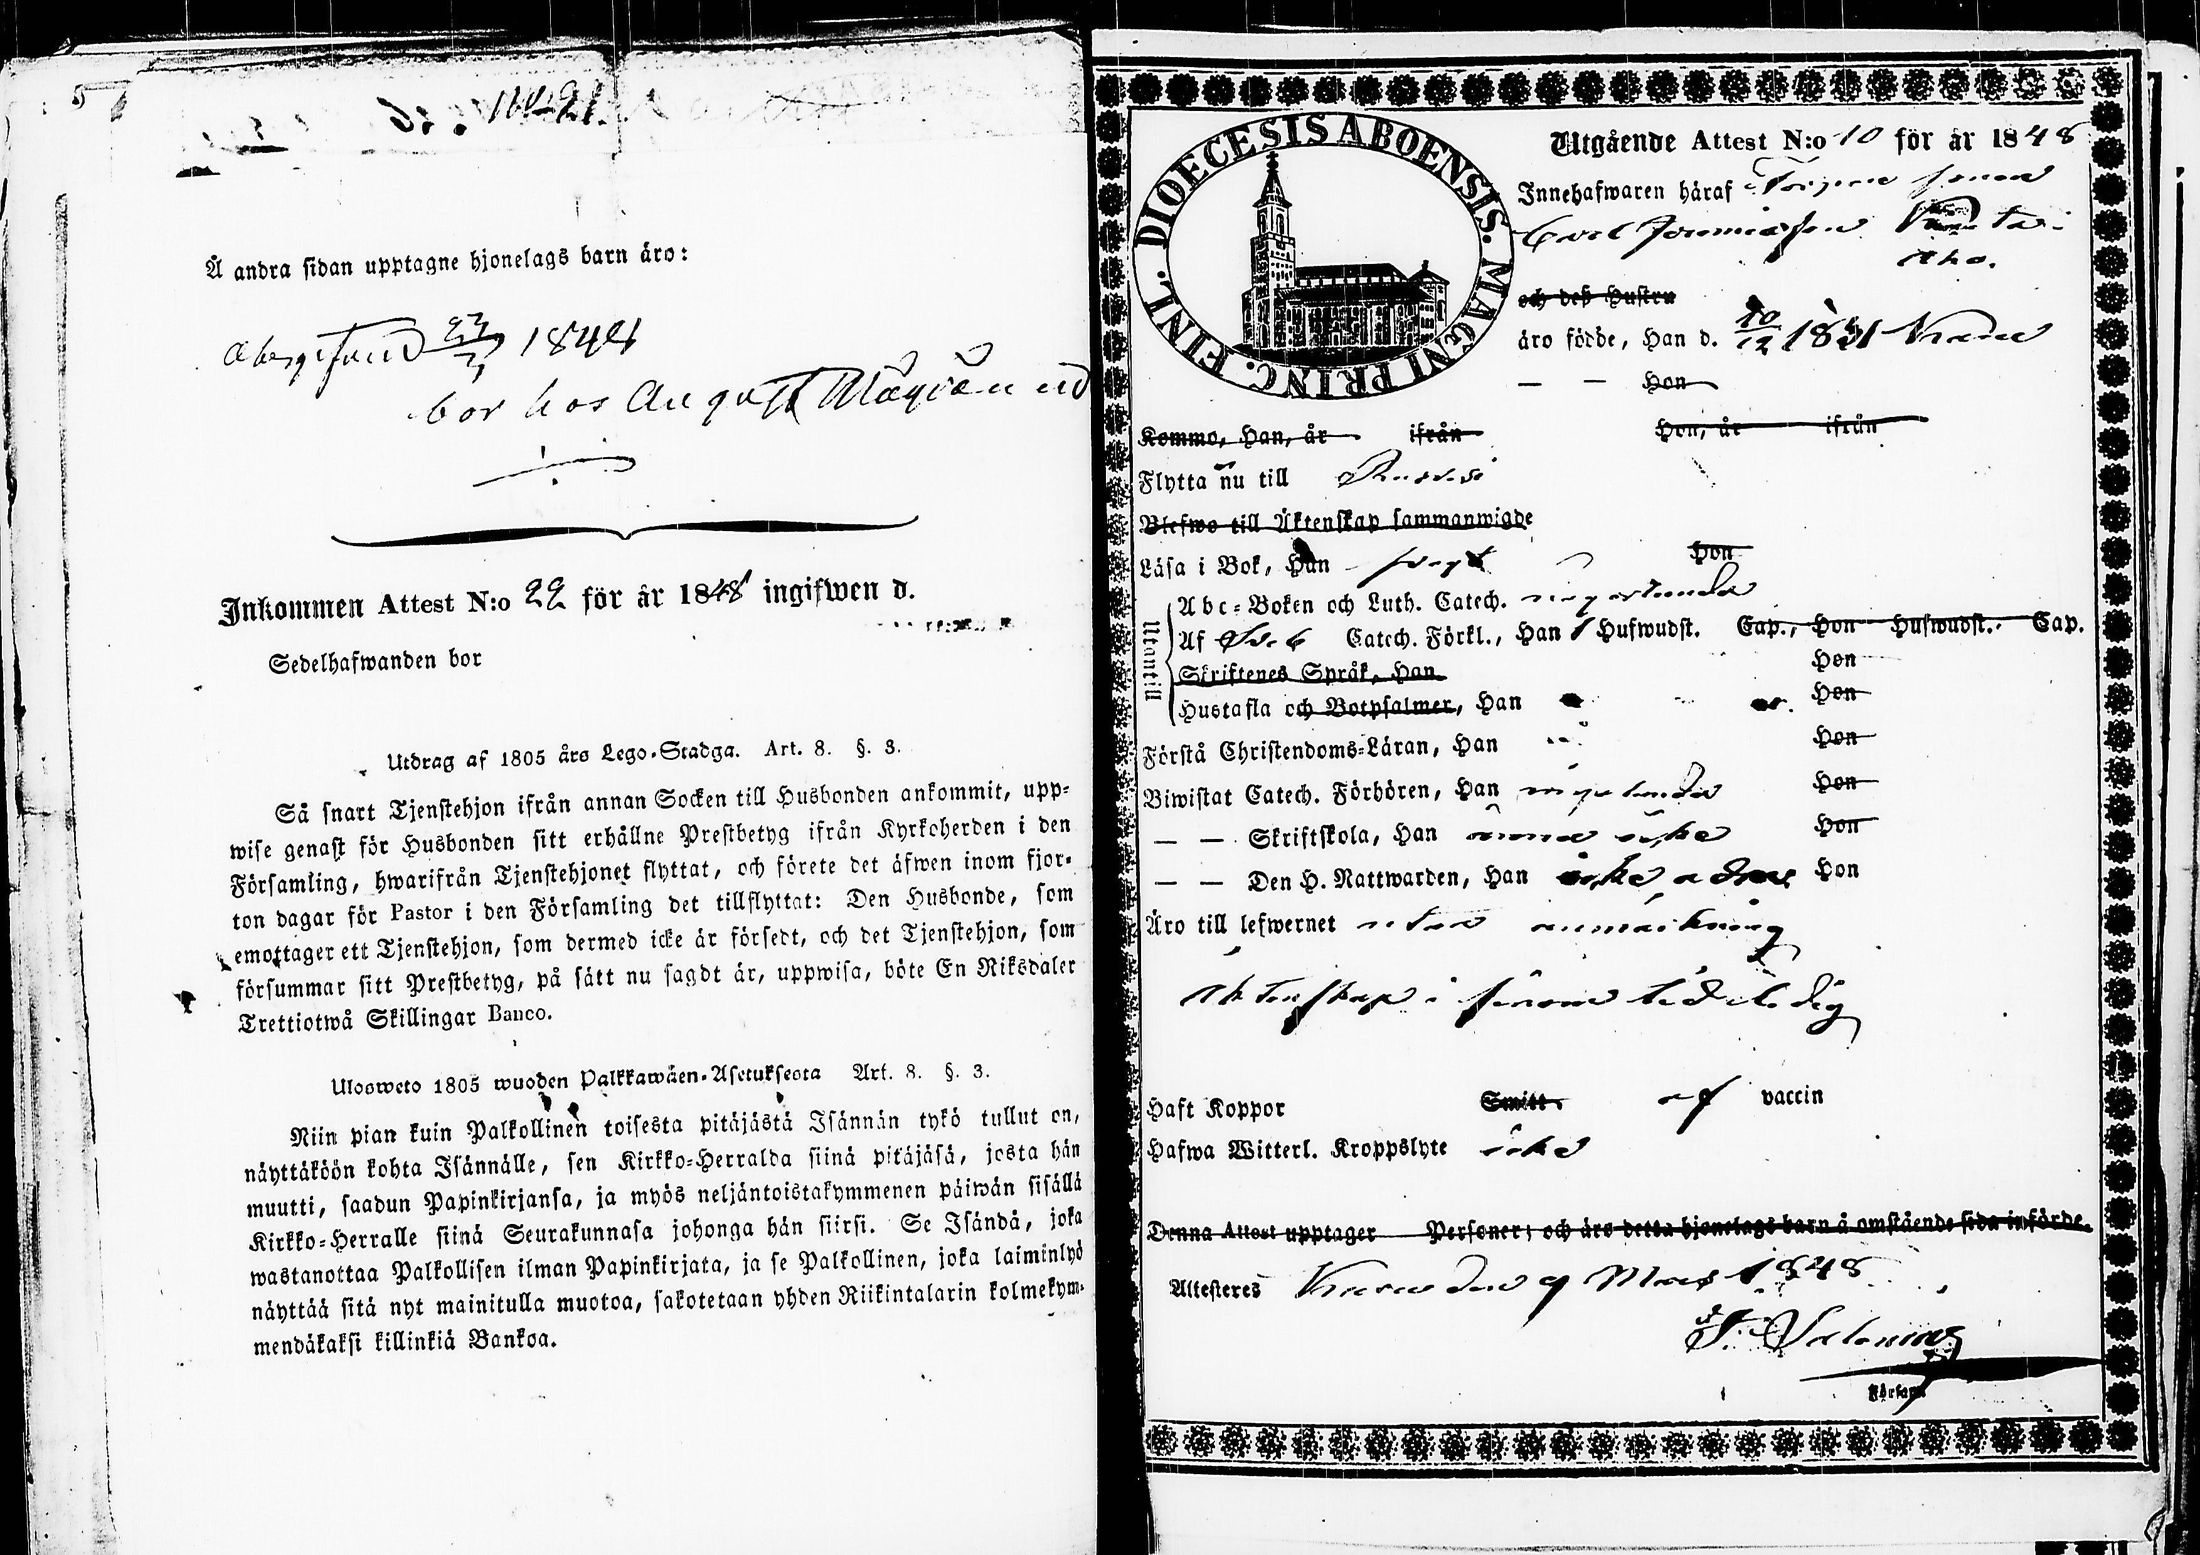 Å andra sidan upptagne hjonelags barn äro:
bor hos August
Inkommen Attest N:o 22 för år 1848 ingifwen d.
Sedelhafwanden bor
Utdrag af 1805 års Lego-Stadga. Art. 8. §. 3.
Så snart Tjenstehjon ifrån annan Socken till Husbonden ankommit, upp-
wise genast för Husbonden sitt erhållne Prestbetyg ifrån Kyrkoherden i den
Församling, hwarifrån Tjenstehjonet flyttat, och förete det äfwen inom fjor-
ton dagar för Pastor i den Församling det tillflyttat: Den Husbonde, som
emottager ett Tjenstehjon, som dermed icke är försedt, och det Tjenstehjon, som
försummar sitt Prestbetyg, på sätt nu sagdt är, uppwisa, böte En Riksdaler
Trettiotwå Skillingar Banco.
Ulosweto 1805 wuoden Palkkawäen-Asetuksesta Art. 8. §. 3.
Niin pian kuin Palkollinen toisesta pitäjästä Isännän tykö tullut on,
näyttäköön kohta Isännälle, sen Kirkko-Herralda siinä pitäjäsä, josta hän
muutti, saadun Papinkirjansa, ja myös neljäntoistakymmenen päiwän sisällä
Kirkko-Herralle siinä Seurakunnasa johonga hän siirsi. Se Isändä, joka
wastanottaa Palkollisen ilman Papinkirjata, ja se Palkollinen, joka laiminlyö
näyttää sitä nyt mainitulla muotoa, sakotetaan yhden Riikintalarin kolmekym-
mendäkaksi killinkiä Bankoa.
DIOECESIS ABOENSIS. MAGNI PRINC. FINL.
Utgående Attest N:o 10 för år 1848
Innehafwaren häraf
Carl
och deß Hustru
äro födde, Han d. 1831
— — Hon
Komma, Han, år ifrån Hon, år ifrån
Flytta nu till
Blefwo till Äktenskap sammanwigde
Läsa i Bok, Han Hon
Utantill
Abc-Boken och Luth. Catech. någorlunda
Af Sveb Catech. Förkl., Han 1 Hufwudst. Cap., Hon Hufwudst. Cap.
Skriftenes Språk, Han Hon
Hustafla och Botpsalmer, Han Hon
Förstå Christendoms-Läran, Han Hon
Biwistat Catech. Förhören, Han någorlunda Hon
— — Skriftskola, Han ännu icke Hon
— — Den H. Nattwarden, Han icke Hon
Äro till lefwernet utan anmärkning
Äktenskap i ledig
Haft Koppor Smitt. af vaccin
Hafwa Witterl. Kroppslyte icke
Denna Attest upptager Personer; och äro detta hjonelags barn å omstående sida införde.
Attesteres den 9 Mars 1848